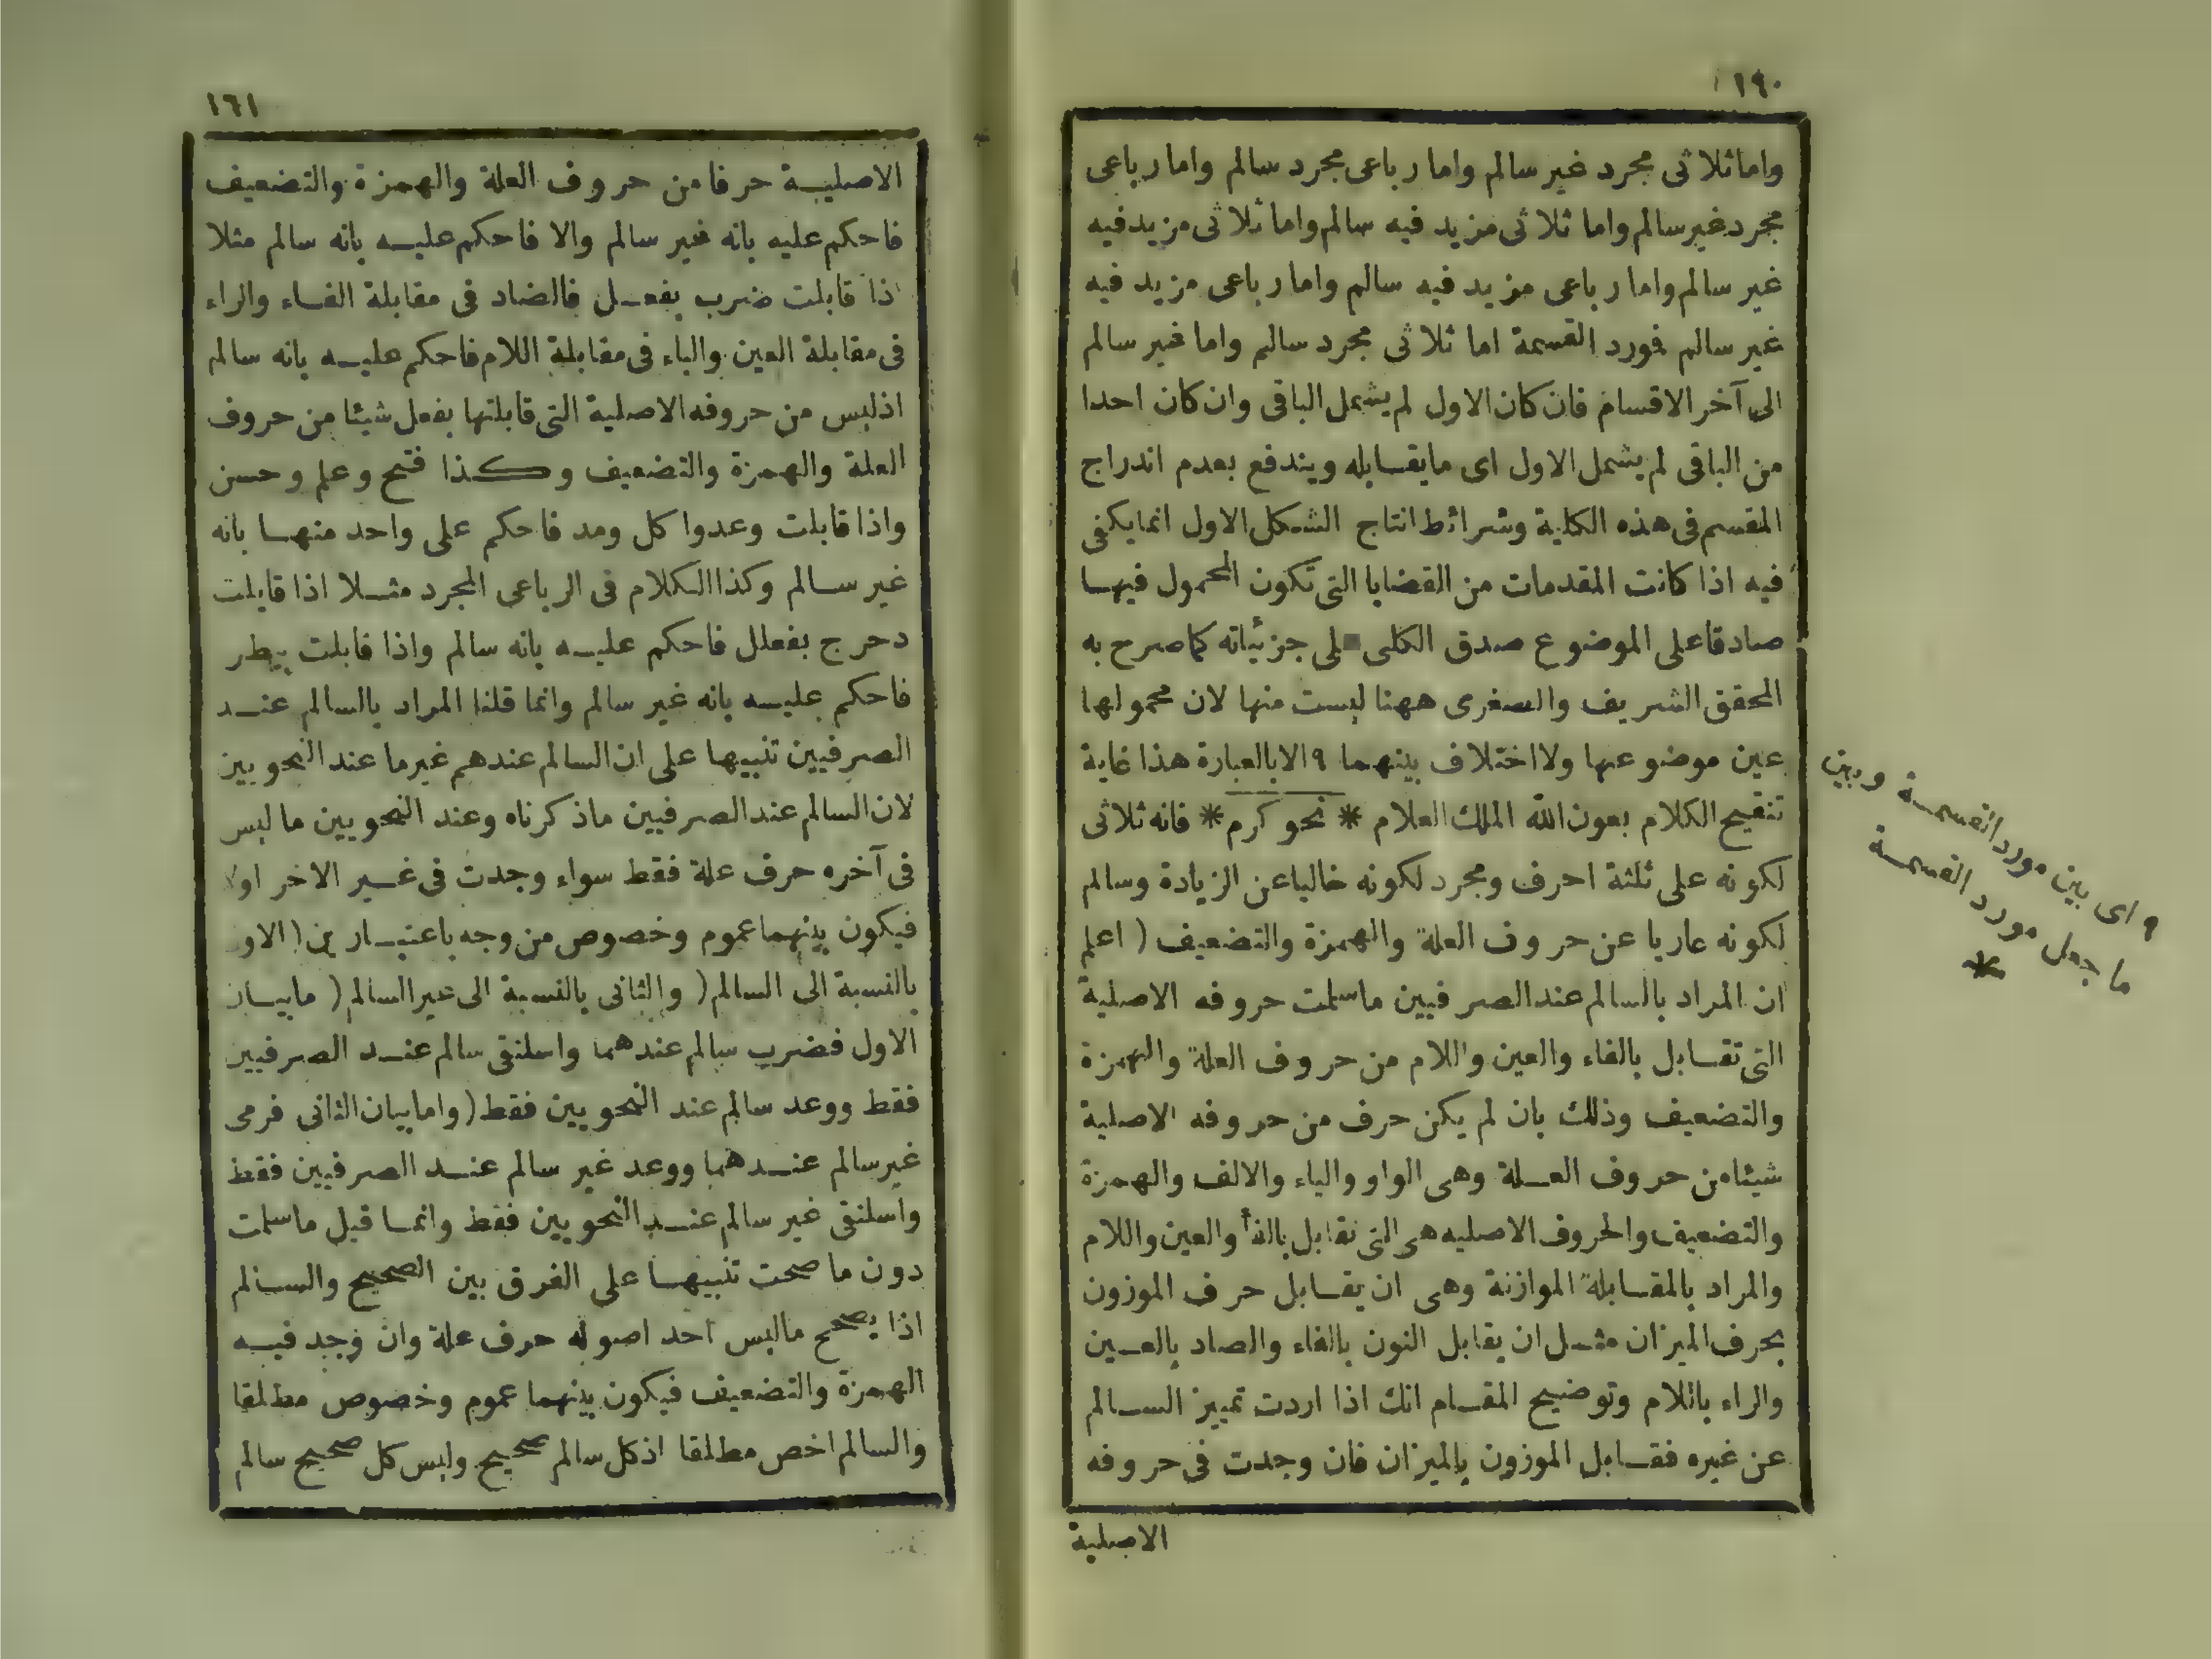 ١٩٠
واما ثلاثى مجرد غير سالم واما رباعى مجرد سالم واما رباعى
مجرد غير سالم واما ثلاثى مزيد فيه سالم واما ثلاثى مزيد فيه
غير سالم واما رباعى مزيد فيه سالم واما رباعى مزيد فيه
غير سالم فورد القسمة اما ثلاثى مجرد سالم واما غير سالم
الى آخر الاقسام فان كان الاول لم يشمل الباقى وان كان احدا
من الباقى لم يشمل الاول اى مايقابله ويندفع بعدم اندراج
المقسم فى هذه الكلية وشرائط انتاج الشكل الاول انما يكفى
فيه اذا كانت المقدمات من القضايا التى تكون المحمول فيها
صادقا على الموضوع صدق الكلى على جزئياته كما صرح به
المحقق الشريف والصغرى ههنا ليست منها لان محمولها
عين موضوعها ولا اختلاف بينهما ٩ الا بالعبارة هذا غاية
تنقيح الكلام بعون الله الملك العلام * نحو كرم * فانه ثلاثى
لكونه على ثلثة احرف ومجرد لكونه خاليا عن الزيادة وسالم
لكونه عاريا عن حروف العلة والهمزة والتضعيف ( اعلم
ان المراد بالسالم عند الصرفيين ماسلمت حروفه الاصلية
التى تقابل بالفاء والعين واللام من حروف العلة والهمزة
والتضعيف وذلك بان لم يكن حرف من حروفه الاصلية
شيئا من حروف العلة وهى الواو والياء والالف والهمزة
والتضعيف والحروف الاصليه هى التى تقابل بالفأ والعين واللام
والمراد بالمقابلة الموازنة وهى ان يقابل حرف الموزون
بحرف الميزان مثل ان يقابل النون بالفاء والصاد بالعين
والراء باللام وتوضيح المقام انك اذا اردت تمييز السالم
عن غيره فقابل الموزون بالميزان فان وجدت فى حروفه
الاصلية
٩ اى بين مورد القسمة وبين
ما جعل مورد القسمة
*
١٦١
الاصلية حرفا من حروف العلة والهمزة والتضعيف
فاحكم عليه بانه غير سالم والا فاحكم عليه بانه سالم مثلا
اذا قابلت ضرب بفعل فالضاد فى مقابلة الفاء والراء
فى مقابلة العين والباء فى مقابلة اللام فاحكم عليه بانه سالم
اذ ليس من حروفه الاصلية التى قابلتها بفعل شيئا من حروف
العلة والهمزة والتضعيف وكذا فتح وعلم وحسن
واذا قابلت وعدوا كل ومد فاحكم على واحد منها بانه
غير سالم وكذا الكلام فى الرباعى المجرد مثلا اذا قابلت
دحرج بفعلل فاحكم عليه بانه سالم واذا قابلت بيطر
فاحكم عليه بانه غير سالم وانما قلنا المراد بالسالم عند
الصرفيين تنبيها على ان السالم عندهم غير ما عند النحويين
لان السالم عند الصرفيين ماذكرناه وعند النحويين ماليس
فى آخره حرف علة فقط سواء وجدت فى غير الاخر اولا
فيكون بينهما عموم وخصوص من وجه باعتبار ين ( الاو
بالنسبة الى السالم ( والثانى بالنسبة الى غير السالم ( مابيان
الاول فضرب سالم عندهما واسلنقى سالم عند الصرفيين
فقط ووعد سالم عند النحويين فقط ( واما بيان الثانى فرمى
غير سالم عندهما ووعد غير سالم عند الصرفيين فقط
واسلنقى غير سالم عند النحويين فقط وانما قيل ماسلمت
دون ما صحت تنبيها على الفرق بين الصحيح والسالم
اذا يصحح ماليس احد اصوله حرف علة وان وجد فيه
الهمزة والتضعيف فيكون بينهما عموم وخصوص مطلقا
والسالم اخص مطلقا اذ كل سالم صحيح وليس كل صحيح سالم